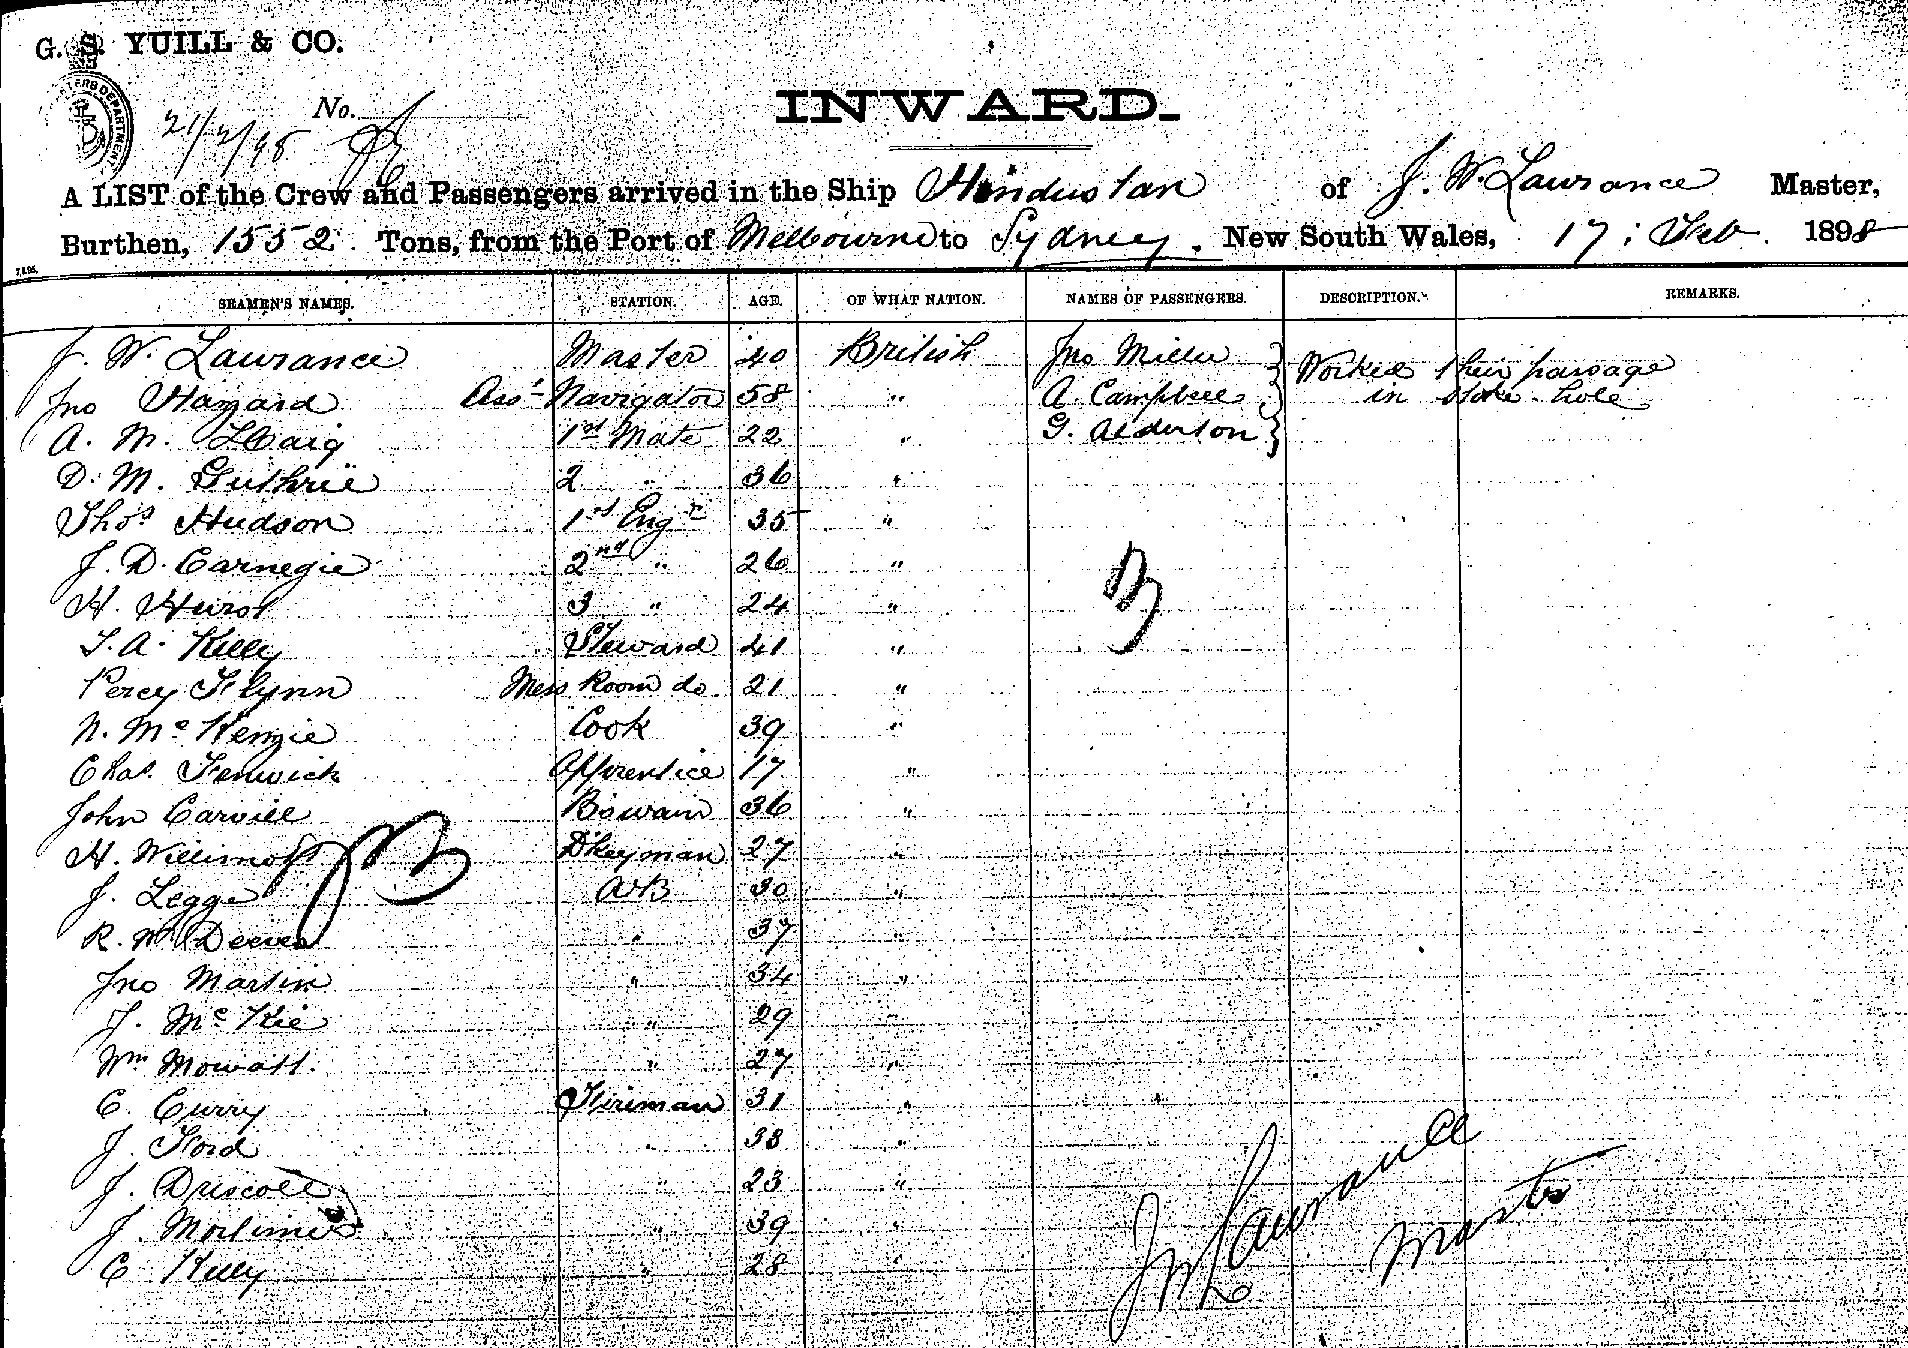 G. S. YUILL & CO.
No.
21/2/98
INWARD.
A LIST of the Crew and Passengers arrived in the Ship Hindustan of J. W. Lawrance Master,
Burthen, 1552 Tons, from the Port of Melbourne to Sydney. New South Wales, 17: Feb. 1898
SEAMEN'S NAMES. STATION. AGE. OF WHAT NATION. NAMES OF PASSENGERS. DESCRIPTION. REMARKS.
J. W. Lawrance Master 40 British Jno Miller Worked their passage
Jno Hazzard Asst Navigator 58 " A Campbell in stoke-hole
A. M. Haig 1st Mate 22 " G. Alderton
D. M. Guthrie 2 " 36 "
Thos Hudson 1st Engr 35 "
J. D. Carnegie 2nd " 26 "
H. Hurst 3 " 24 "
T. A. Kelly Steward 41 "
Percy Flynn Mess Room do 21 "
N. McKenzie Cook 39 "
Chas. Fenwick Apprentice 17 "
John Carvill Boswain 36 "
H. Willimott Dkeyman 27 "
J. Legge AB 30 "
R. W. Deeves " 37 "
Jno Martin " 34 "
J. McKie " 29 "
Wm Mowatt. " 27 "
C. Curry Fireman 31 "
J. Ford " 38 "
J. Driscoll " 23 "
J. Mortimer " 39 "
C Kelly " 28 "
J W Lawrance
Master